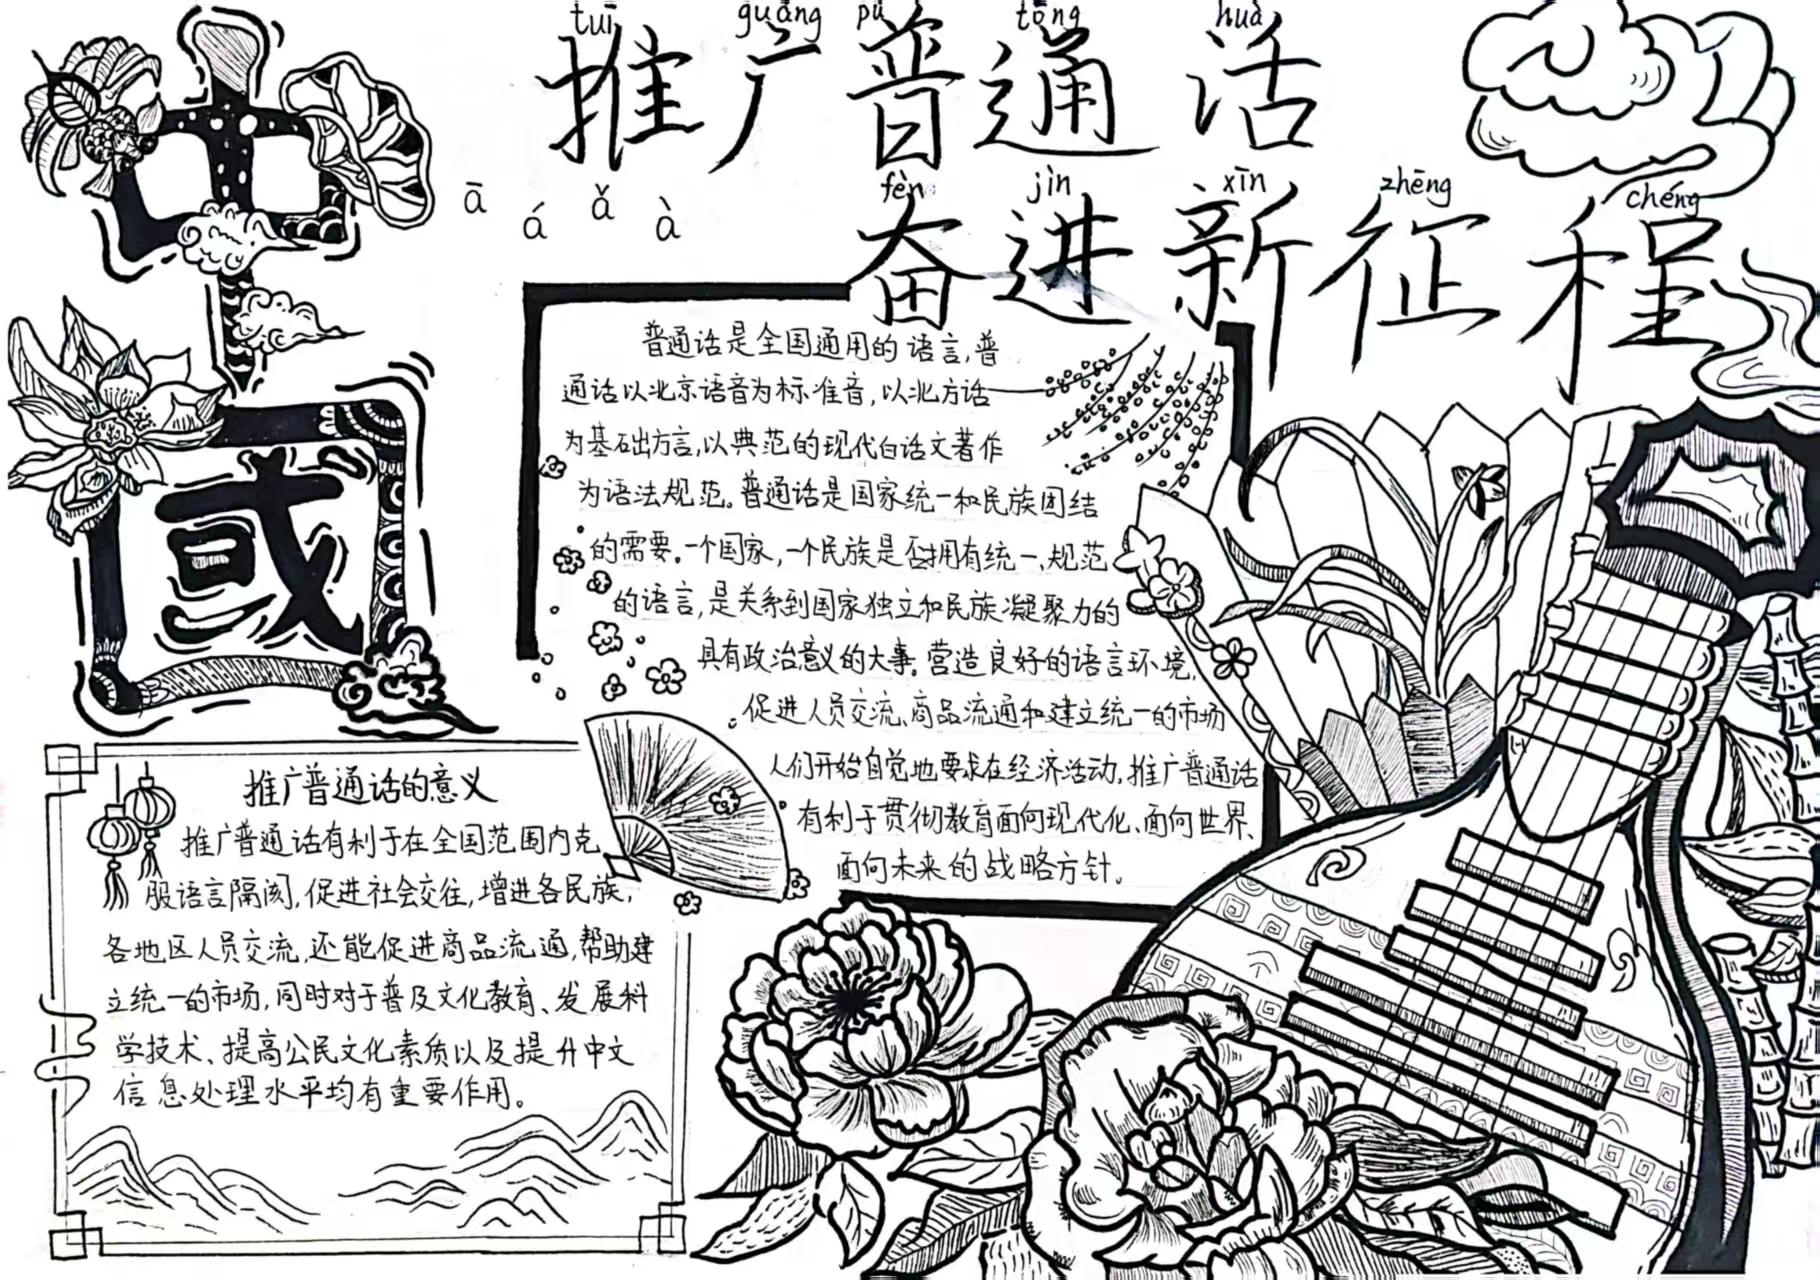 tuī guǎng pǔ tōng huà
推广普通话
fèn jìn xīn zhēng chéng
奋进新征程
ā á ǎ à
中
国
普通话是全国通用的语言,普
通话以北京语音为标准音,以北方话
为基础方言,以典范的现代白话文著作
为语法规范。普通话是国家统一和民族团结
的需要。一个国家,一个民族是否拥有统一、规范
的语言,是关系到国家独立和民族凝聚力的
具有政治意义的大事。营造良好的语言环境,
促进人员交流、商品流通和建立统一的市场
人们开始自觉地要求在经济活动,推广普通话
有利于贯彻教育面向现代化、面向世界、
面向未来的战略方针。
推广普通话的意义
推广普通话有利于在全国范围内克
服语言隔阂,促进社会交往,增进各民族,
各地区人员交流,还能促进商品流通,帮助建
立统一的市场,同时对于普及文化教育、发展科
学技术、提高公民文化素质以及提升中文
信息处理水平均有重要作用。